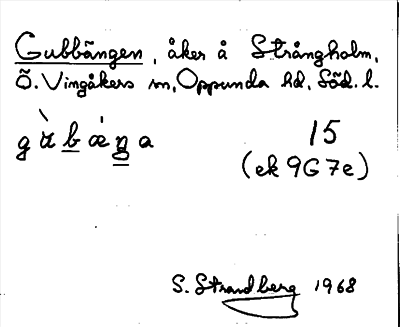 Gubbängen, åker å Strångholm,
Ö. Vingåkers sn, Oppunda hd, Söd. l.
gὺbæ̇ŋa
15
(ek 9G 7e)
S. Strandberg 1968